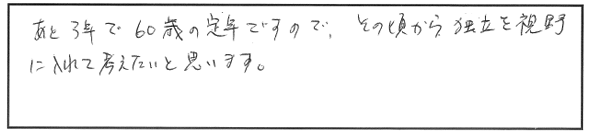 あと3年で60歳の定年ですので、その頃から独立を視野
に入れて考えたいと思います。